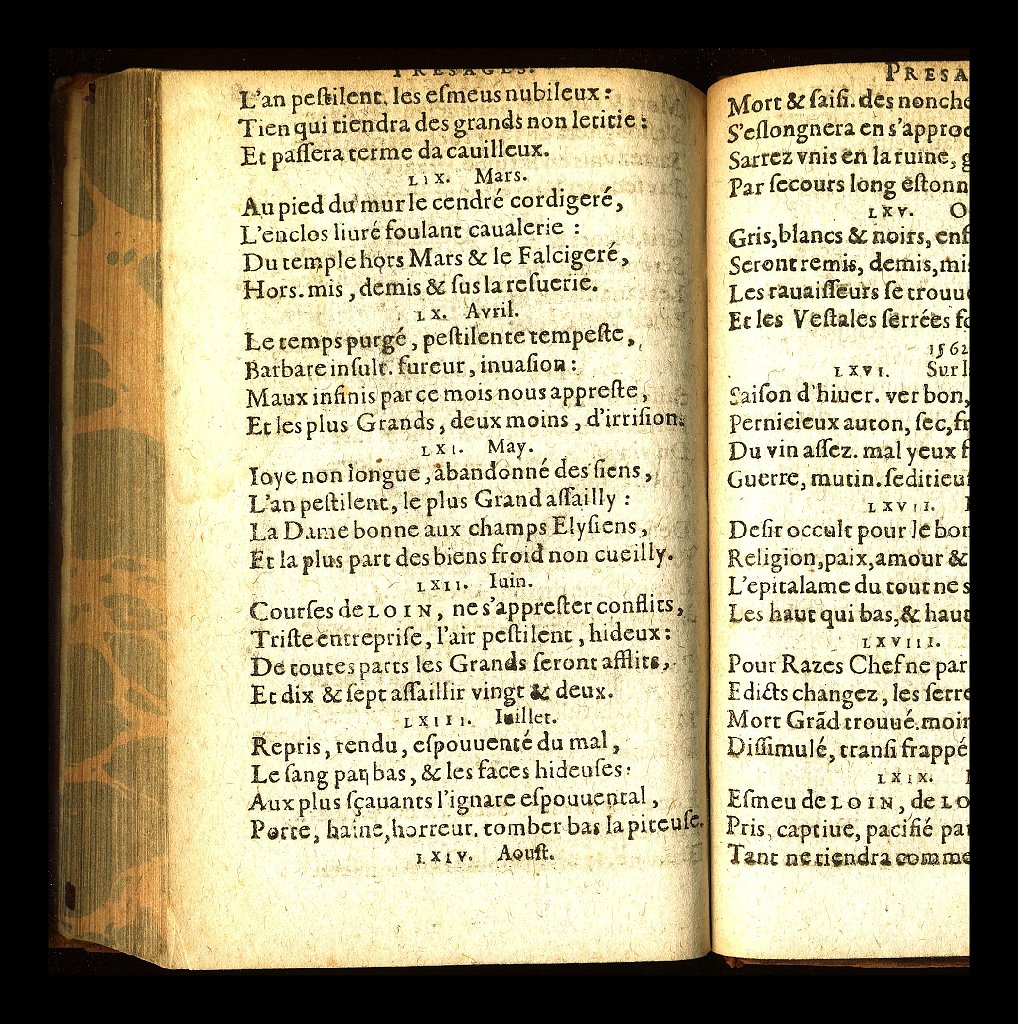 PRESAGES.
L'an peſtilent. les eſmeus nubileux:
Tien qui tiendra des grands non letitie:
Et paſſera terme da cauilleux.
LIX. Mars.
Au pied du mur le cendré cordigeré,
L'enclos liuré foulant caualerie :
Du temple hors Mars & le Falcigeré,
Hors. mis, demis & ſus la reſuerie.
LX. Avril.
Le temps purgé, peſtilente tempeſte,
Barbare inſult. fureur, inuaſion:
Maux infinis par ce mois nous appreſte,
Et les plus Grands, deux moins, d'irriſion.
LXI. May.
Ioye non longue, abandonné des ſiens,
L'an peſtilent, le plus Grand aſſailly :
La Dame bonne aux champs Elyſiens,
Et la plus part des biens froid non cueilly.
LXII. Iuin.
Courſes de LOIN, ne s'appreſter conflits,
Triſte entrepriſe, l'air peſtilent, hideux:
De toutes parts les Grands ſeront afflits,
Et dix & ſept aſſaillir vingt & deux.
LXIII. Iuillet.
Repris, rendu, eſpouuenté du mal,
Le ſang par bas, & les faces hideuſes:
Aux plus ſçauants l'ignare eſpouuental,
Porte, haine, horreur. tomber bas la piteuſe.
LXIV. Aouſt.
PRESA
Mort & ſaiſi. des nonche
S'eſlongnera en s'approc
Sarrez vnis en la ruine, g
Par ſecours long eſtonn
LXV. O
Gris, blancs & noirs, enf
Seront remis, demis, mis
Les rauaiſſeurs ſe trouue
Et les Veſtales ſerrées fo
1562
LXVI. Sur l
Saiſon d'hiuer. ver bon,
Pernicieux auton, ſec, fr
Du vin aſſez. mal yeux f
Guerre, mutin. ſeditieuſ
LXVII.
Deſir occult pour le bon
Religion, paix, amour &
L'epitalame du tout ne s
Les haut qui bas, & haut
LXVIII.
Pour Razes Chef ne par
Edicts changez, les ſerre
Mort Grãd trouué. moin
Diſſimulé, tranſi frappé
LXIX.
Eſmeu de LOIN, de LO
Pris, captiue, pacifié par
Tant ne tiendra comme